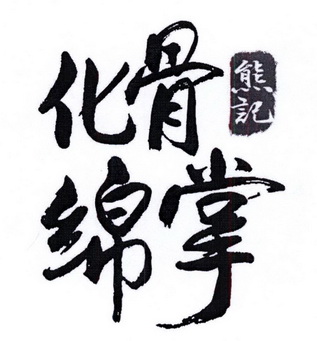 化骨
绵掌
熊記